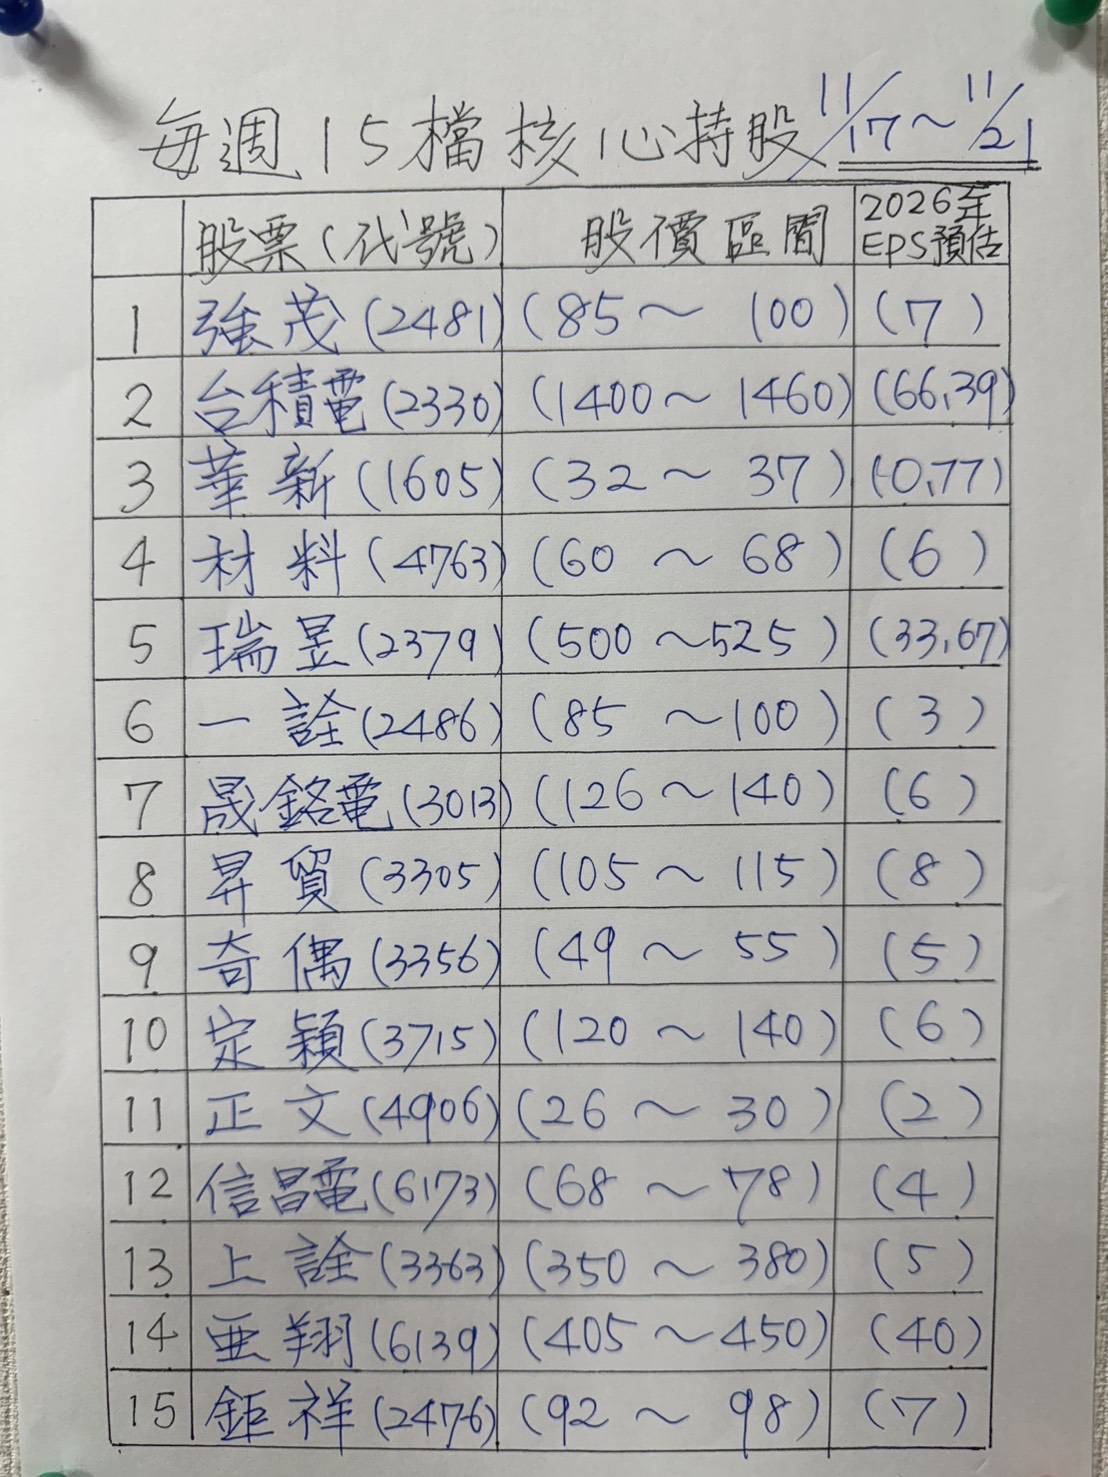 每週15檔核心持股 11/17～11/21
股票(代號) 股價區間 2026年EPS預估
1 強茂(2481) (85～100) (7)
2 台積電(2330) (1400～1460) (66.39)
3 華新(1605) (32～37) (-0.77)
4 材料(4763) (60～68) (6)
5 瑞昱(2379) (500～525) (33.67)
6 一詮(2486) (85～100) (3)
7 晟銘電(3013) (126～140) (6)
8 昇貿(3305) (105～115) (8)
9 奇偶(3356) (49～55) (5)
10 定穎(3715) (120～140) (6)
11 正文(4906) (26～30) (2)
12 信昌電(6173) (68～78) (4)
13 上詮(3363) (350～380) (5)
14 亜翔(6139) (405～450) (40)
15 鉅祥(2476) (92～98) (7)